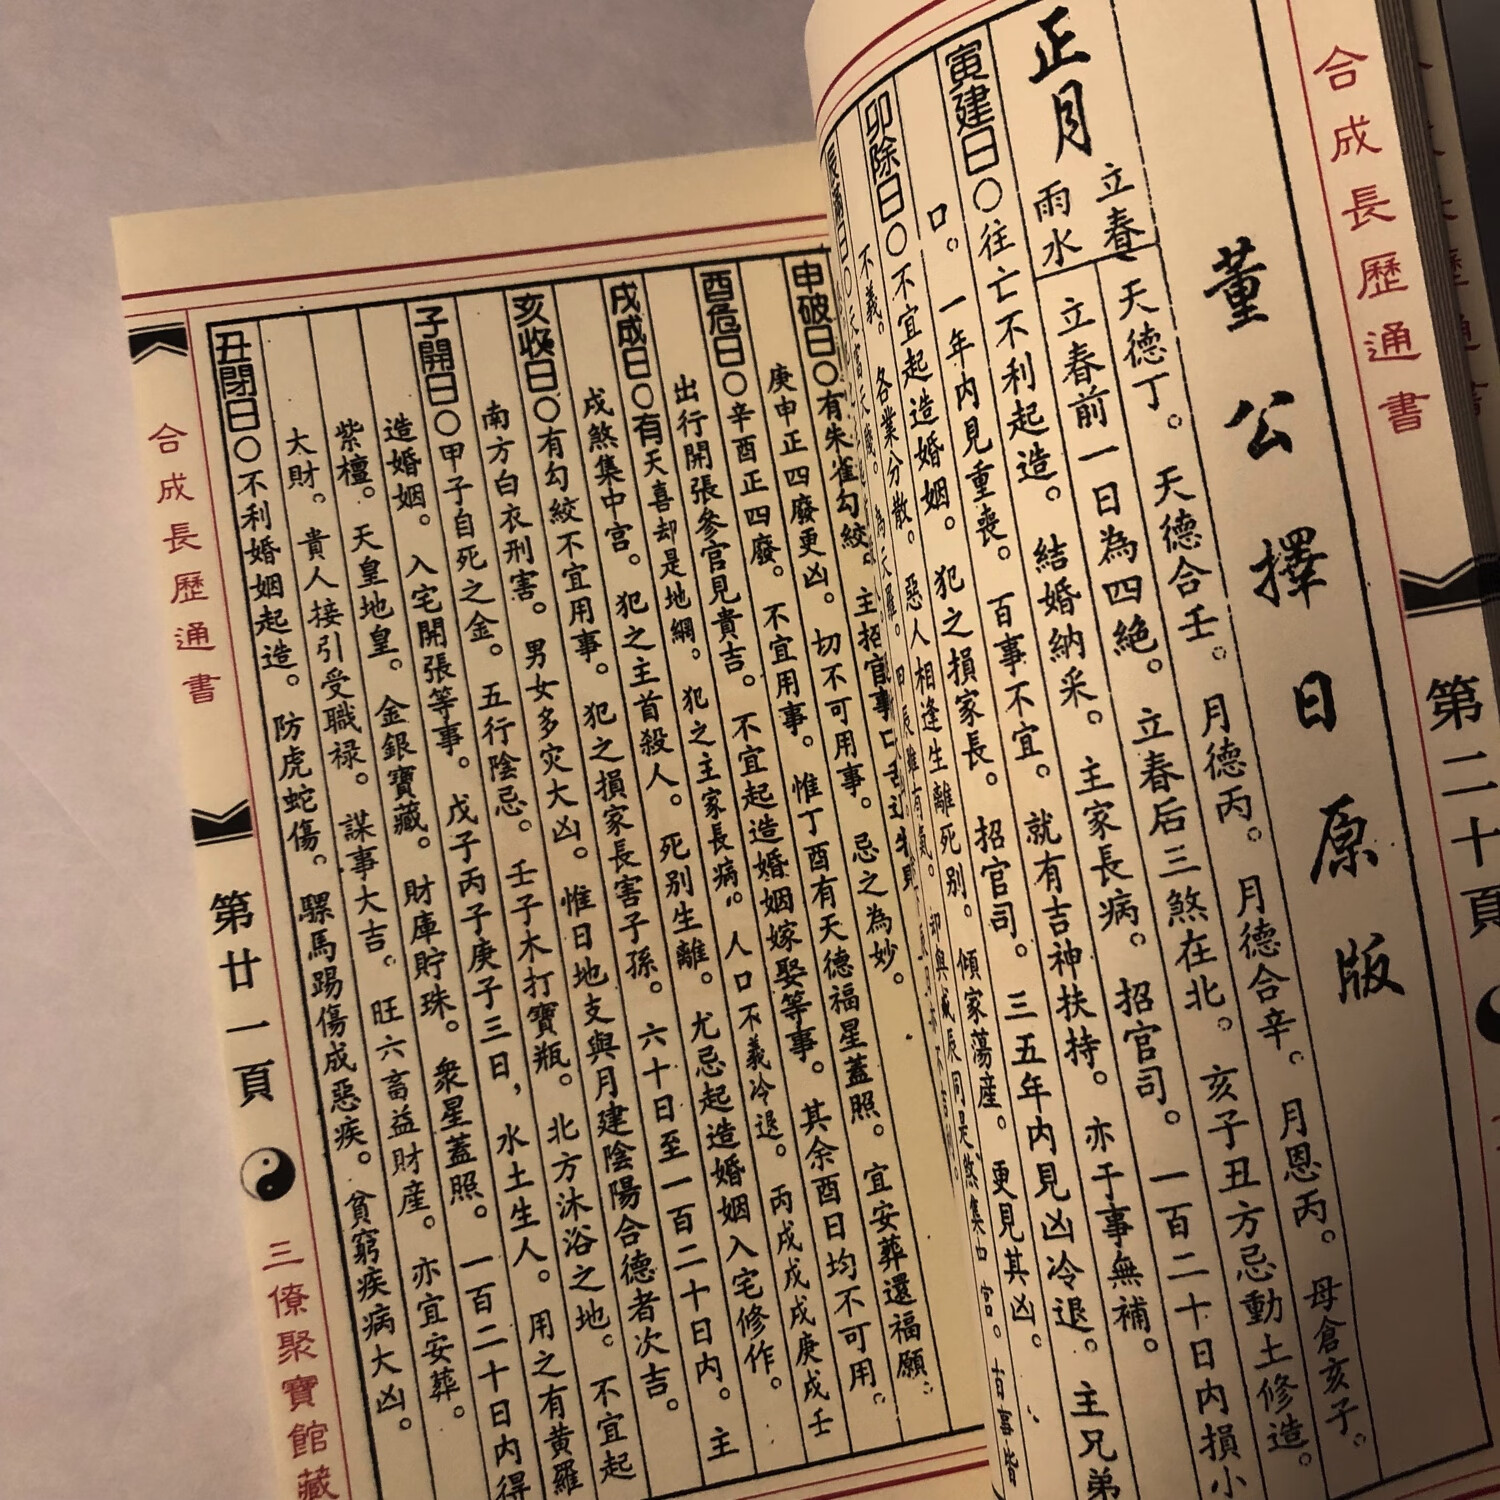 合成長歷通書
第二十頁
董公擇日原版
正月
立春
雨水
天德丁。天德合壬。月德丙。月德合辛。月恩丙。母倉亥子。
立春前一日為四絕。立春后三煞在北。亥子丑方忌動土修造。
寅建日○往亡不利起造。結婚納采。主家長病。招官司。一百二十日內損小
口。一年內見重喪。百事不宜。就有吉神扶持。亦于事無補。
卯除日○不宜起造婚姻。犯之損家長。招官司。三五年內見凶冷退。主兄弟
不義。各業分散。惡人相逢生離死別。傾家蕩産。更見其凶。
申破日○有朱雀勾絞。主招官事口舌
庚申正四廢更凶。切不可用事。忌之為妙。
酉危日○辛酉正四廢。不宜用事。惟丁酉有天德福星蓋照。宜安葬還福願。
出行開張參官見貴吉。不宜起造婚姻嫁娶等事。其余酉日均不可用。
戌成日○有天喜却是地網。犯之主家長病。人口不義冷退。丙戌戊戌庚戌壬
戌煞集中宮。犯之主首殺人。死别生離。尤忌起造婚姻入宅修作。
亥收日○有勾絞不宜用事。犯之損家長害子孫。六十日至一百二十日內。主
南方白衣刑害。男女多灾大凶。惟日地支與月建陰陽合德者次吉。
子開日○甲子自死之金。五行陰忌。壬子木打寶瓶。北方沐浴之地。不宜起
造婚姻。入宅開張等事。戊子丙子庚子三日，水土生人。用之有黄羅
紫檀。天皇地皇。金銀寶藏。財庫貯珠。衆星蓋照。一百二十日內得
大財。貴人接引受職禄。謀事大吉。旺六畜益財産。亦宜安葬。
丑閉日○不利婚姻起造。防虎蛇傷。騾馬踢傷成惡疾。貧窮疾病大凶。
合成長歷通書
第廿一頁
三僚聚寶館藏